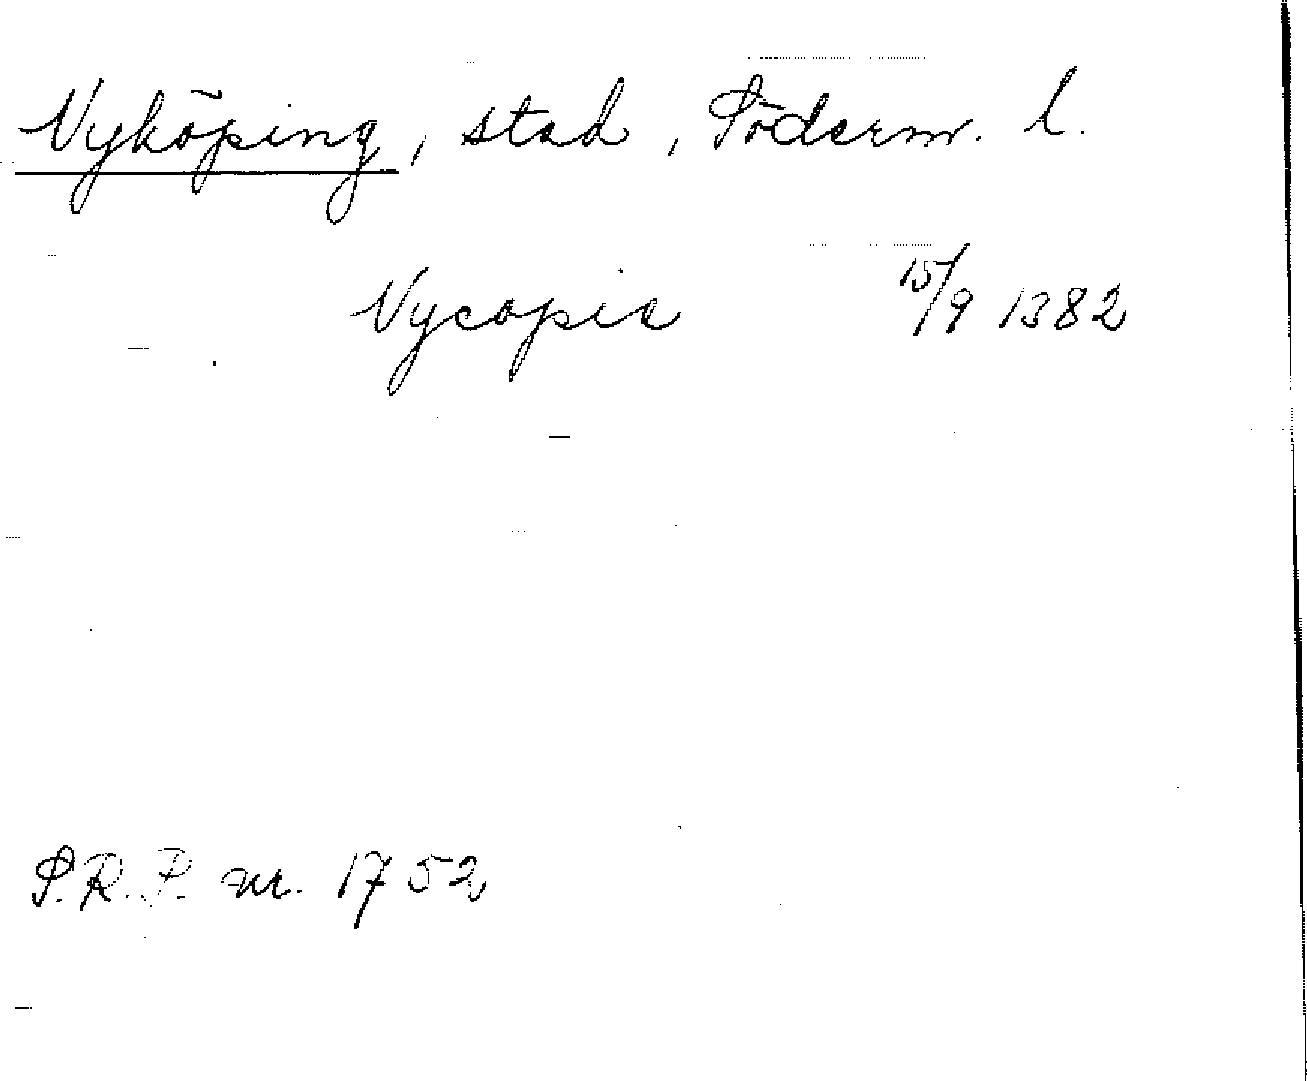 Nyköping, stad, Söderm. l.
Nycopia 15/9 1382
S.R.P. nr. 1752